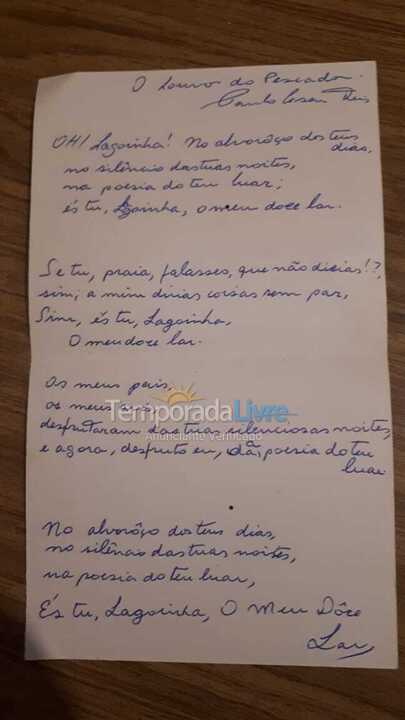 O Louvor do Pescador.
Paulo Cesar Reis
OH! Lagoinha! No alvorôço dos teus
dias,
no silêncio das tuas noites,
na poesia do teu luar;
és tu, Lagoinha, o meu doce lar.
Se tu, praia, falasses, que não dirias!?,
sim, a mim dirias coisas sem par,
Sim, és tu, Lagoinha,
O meu doce lar.
Os meus pais,
os meus
TemporadaLivre
Anunciante Verificado
desfrutaram das tuas silenciosas noites,
e agora, desfruto eu, da poesia do teu
luar
No alvorôço dos teus dias,
no silêncio das tuas noites,
na poesia do teu luar,
És tu, Lagoinha, O Meu Dôce
Lar,